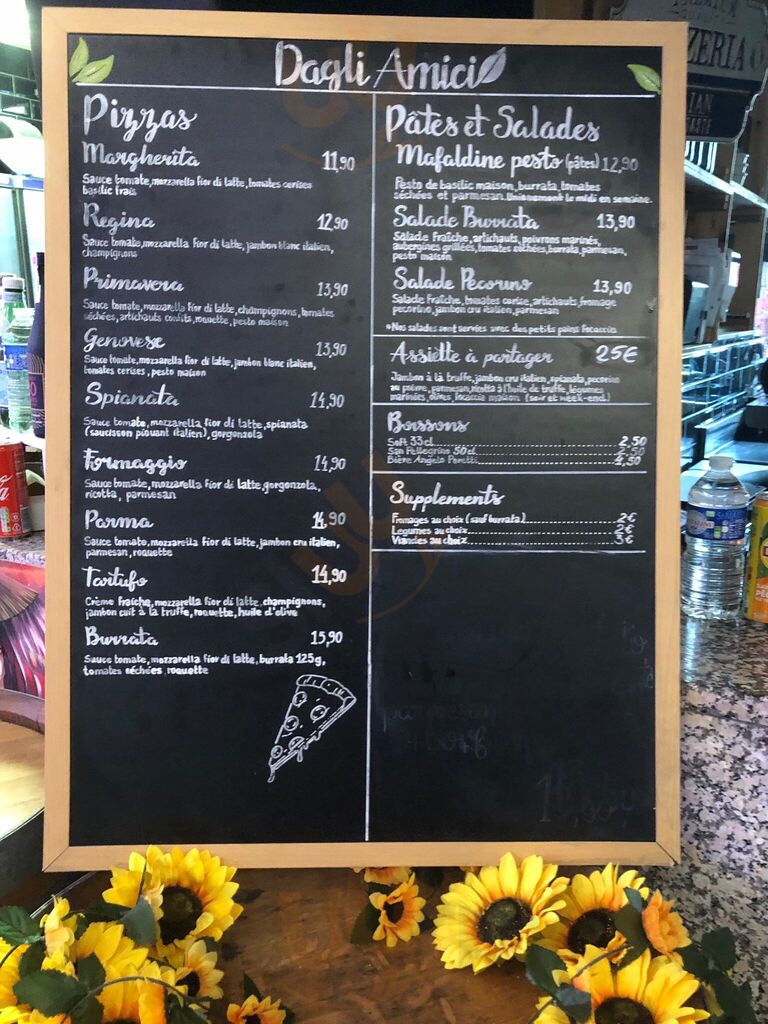 Dagli Amici
Pizzas
Margherita 11,90
Sauce tomate, mozzarella fior di latte, tomates cerises
basilic frais
Regina 12,90
Sauce tomate, mozzarella fior di latte, jambon blanc italien,
champignons
Primavera 13,90
Sauce tomate, mozzarella fior di latte, champignons, tomates
séchées, artichauts confits, roquette, pesto maison
Genovese 13,90
Sauce tomate, mozzarella fior di latte, jambon blanc italien,
tomates cerises, pesto maison
Spianata 14,90
Sauce tomate, mozzarella fior di latte, spianata
(saucisson piquant italien), gorgonzola
Formaggio 14,90
Sauce tomate, mozzarella fior di latte, gorgonzola,
ricotta, parmesan
Parma 14,90
Sauce tomate, mozzarella fior di latte, jambon cru italien,
parmesan, roquette
Tartufo 14,90
Crème fraîche, mozzarella fior di latte, champignons,
jambon cuit à la truffe, roquette, huile d'olive
Burrata 15,90
Sauce tomate, mozzarella fior di latte, burrata 125g,
tomates séchées, roquette
Pâtes et Salades
Mafaldine pesto (pâtes) 12,90
Pesto de basilic maison, burrata, tomates
séchées et parmesan. Uniquement le midi en semaine.
Salade Burrata 13,90
Salade fraîche, artichauts, poivrons marinés,
aubergines grillées, tomates séchées, burrata, parmesan,
pesto maison
Salade Pecorino 13,90
Salade fraîche, tomates cerise, artichauts, fromage
pecorino, jambon cru italien, parmesan
*Nos salades sont servies avec des petits pains focaccia
Assiette à partager 25€
Jambon à la truffe, jambon cru italien, spianata, pecorino
au poivre, parmesan, ricotta à l'huile de truffe, légumes
marinés, olives, focaccia maison (soir et week-end)
Boissons
Soft 33cl 2,50
San Pellegrino 50cl 2,50
Bière Angelo Poretti 4,50
Supplements
Fromages au choix (sauf burrata) 2€
Legumes au choix 2€
Viandes au choix 3€
parmesan
ZERIA